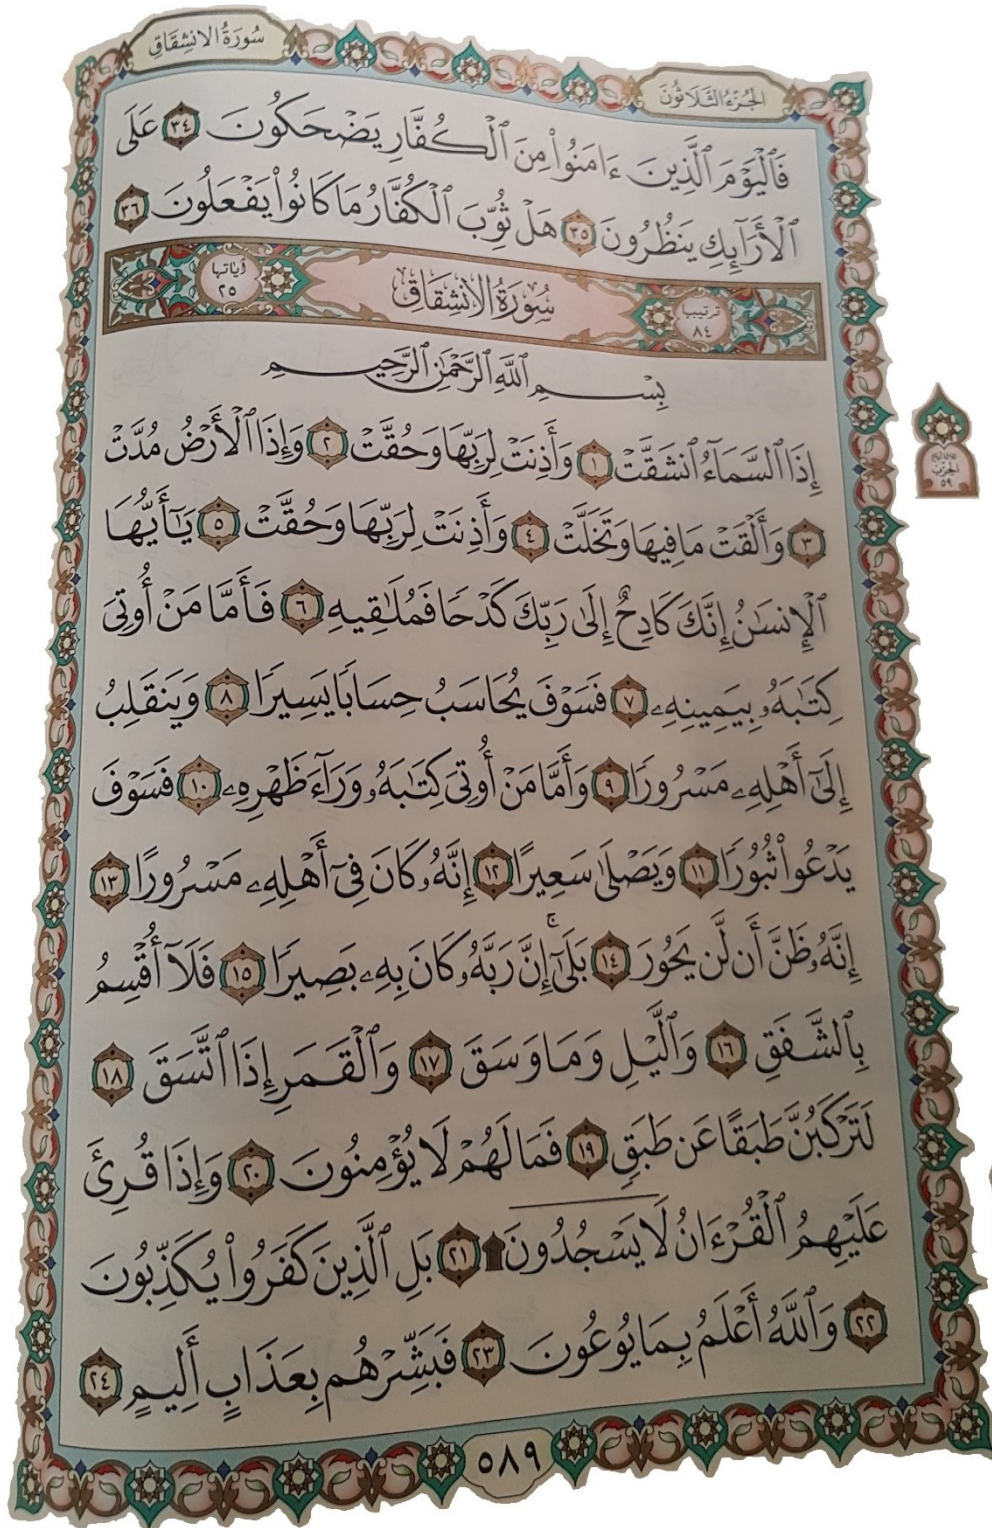 سُورَةُ الانشِقَاقِ
الجُزْءُ الثَّلَاثُونَ
فَٱلْيَوْمَ ٱلَّذِينَ ءَامَنُوا۟ مِنَ ٱلْكُفَّارِ يَضْحَكُونَ ٣٤ عَلَى
ٱلْأَرَآئِكِ يَنظُرُونَ ٣٥ هَلْ ثُوِّبَ ٱلْكُفَّارُ مَا كَانُوا۟ يَفْعَلُونَ ٣٦
ترتيبها ٨٤ سُورَةُ الانشِقَاقِ آياتها ٢٥
بِسْمِ ٱللَّهِ ٱلرَّحْمَٰنِ ٱلرَّحِيمِ
إِذَا ٱلسَّمَآءُ ٱنشَقَّتْ ١ وَأَذِنَتْ لِرَبِّهَا وَحُقَّتْ ٢ وَإِذَا ٱلْأَرْضُ مُدَّتْ
٣ وَأَلْقَتْ مَا فِيهَا وَتَخَلَّتْ ٤ وَأَذِنَتْ لِرَبِّهَا وَحُقَّتْ ٥ يَٰٓأَيُّهَا
ٱلْإِنسَٰنُ إِنَّكَ كَادِحٌ إِلَىٰ رَبِّكَ كَدْحًا فَمُلَٰقِيهِ ٦ فَأَمَّا مَنْ أُوتِىَ
كِتَٰبَهُۥ بِيَمِينِهِۦ ٧ فَسَوْفَ يُحَاسَبُ حِسَابًا يَسِيرًا ٨ وَيَنقَلِبُ
إِلَىٰٓ أَهْلِهِۦ مَسْرُورًا ٩ وَأَمَّا مَنْ أُوتِىَ كِتَٰبَهُۥ وَرَآءَ ظَهْرِهِۦ ١٠ فَسَوْفَ
يَدْعُوا۟ ثُبُورًا ١١ وَيَصْلَىٰ سَعِيرًا ١٢ إِنَّهُۥ كَانَ فِىٓ أَهْلِهِۦ مَسْرُورًا ١٣
إِنَّهُۥ ظَنَّ أَن لَّن يَحُورَ ١٤ بَلَىٰٓۚ إِنَّ رَبَّهُۥ كَانَ بِهِۦ بَصِيرًا ١٥ فَلَآ أُقْسِمُ
بِٱلشَّفَقِ ١٦ وَٱلَّيْلِ وَمَا وَسَقَ ١٧ وَٱلْقَمَرِ إِذَا ٱتَّسَقَ ١٨
لَتَرْكَبُنَّ طَبَقًا عَن طَبَقٍ ١٩ فَمَا لَهُمْ لَا يُؤْمِنُونَ ٢٠ وَإِذَا قُرِئَ
عَلَيْهِمُ ٱلْقُرْءَانُ لَا يَسْجُدُونَ ۩ ٢١ بَلِ ٱلَّذِينَ كَفَرُوا۟ يُكَذِّبُونَ
٢٢ وَٱللَّهُ أَعْلَمُ بِمَا يُوعُونَ ٢٣ فَبَشِّرْهُم بِعَذَابٍ أَلِيمٍ ٢٤
٥٨٩
الحزب
٥٩